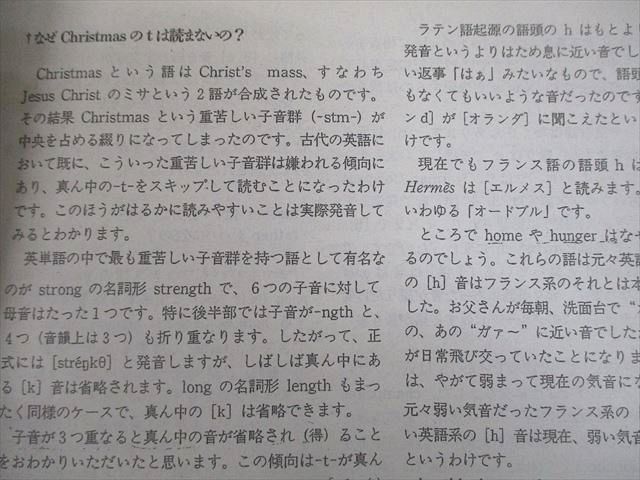 ↑なぜ Christmas の t は読まないの？
Christmas という語は Christ's mass、すなわち
Jesus Christ のミサという２語が合成されたものです。
その結果 Christmas という重苦しい子音群 (-stm-) が
中央を占める綴りになってしまったのです。古代の英語に
おいて既に、こういった重苦しい子音群は嫌われる傾向に
あり、真ん中の-t-をスキップして読むことになったわけ
です。このほうがはるかに読みやすいことは実際発音して
みるとわかります。
英単語の中で最も重苦しい子音群を持つ語として有名な
のが strong の名詞形 strength で、６つの子音に対して
母音はたった１つです。特に後半部では子音が-ngth と、
４つ（音韻上は３つ）も折り重なります。したがって、正
式には [stréŋkθ] と発音しますが、しばしば真ん中にあ
る [k] 音は省略されます。long の名詞形 length もまっ
たく同様のケースで、真ん中の [k] は省略できます。
子音が３つ重なると真ん中の音が省略され（得）ること
をおわかりいただいたと思います。この傾向は-t-が真ん
ラテン語起源の語頭の h はもとよ
発音というよりはため息に近い音でし
い返事「はぁ」みたいなもので、語頭
もなくてもいいような音だったのです
ンd］が［オランダ］に聞こえたとい
けです。
現在でもフランス語の語頭 h は
Hermès は［エルメス］と読みます。
いわゆる「オードブル」です。
ところで home や hunger はなぜ
るのでしょう。これらの語は元々英語
の [h] 音はフランス系のそれとは本
した。お父さんが毎朝、洗面台で“
の、あの“ガァ〜”に近い音でした
が日常飛び交っていたことになりま
は、やがて弱まって現在の気音にな
元々弱い気音だったフランス系の
い英語系の [h] 音は現在、弱い気音
というわけです。